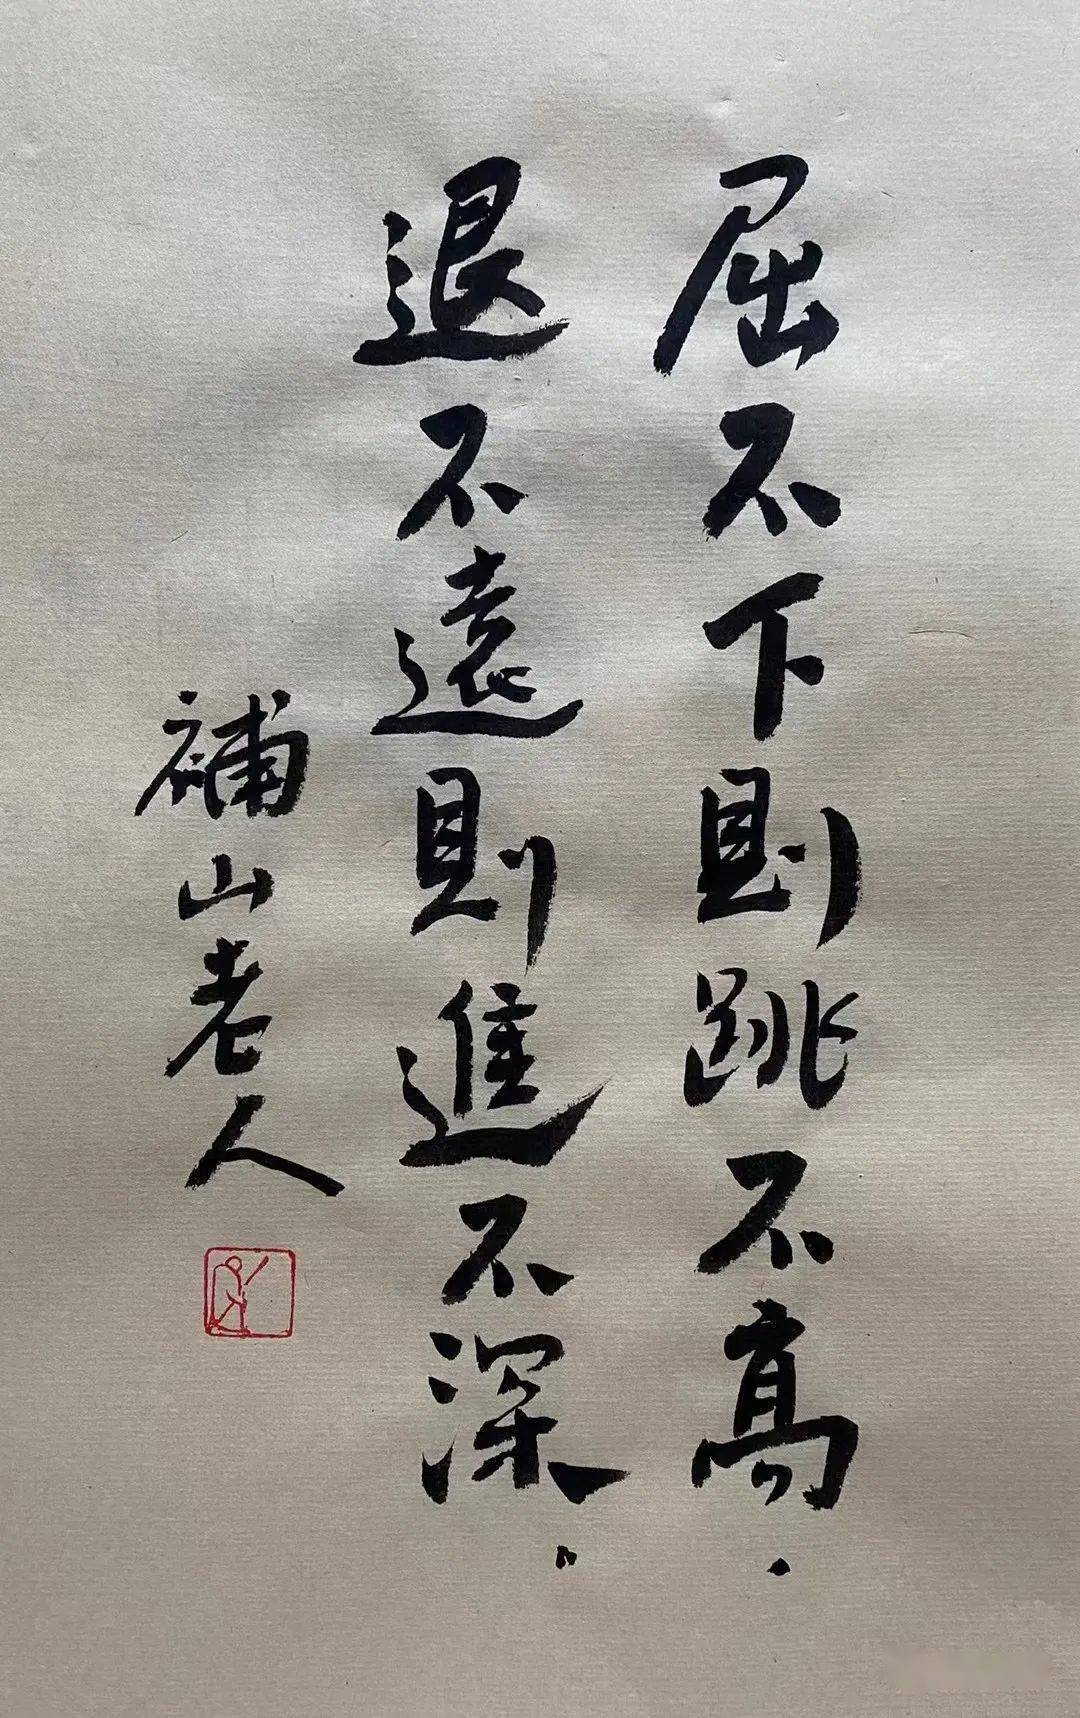 屈不下則跳不高.
退不遠則進不深.
補山老人